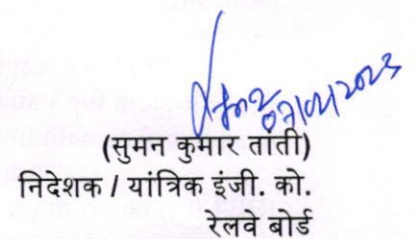 07/02/2023
(सुमन कुमार तांती)
निदेशक / यांत्रिक इंजी. को.
रेलवे बोर्ड